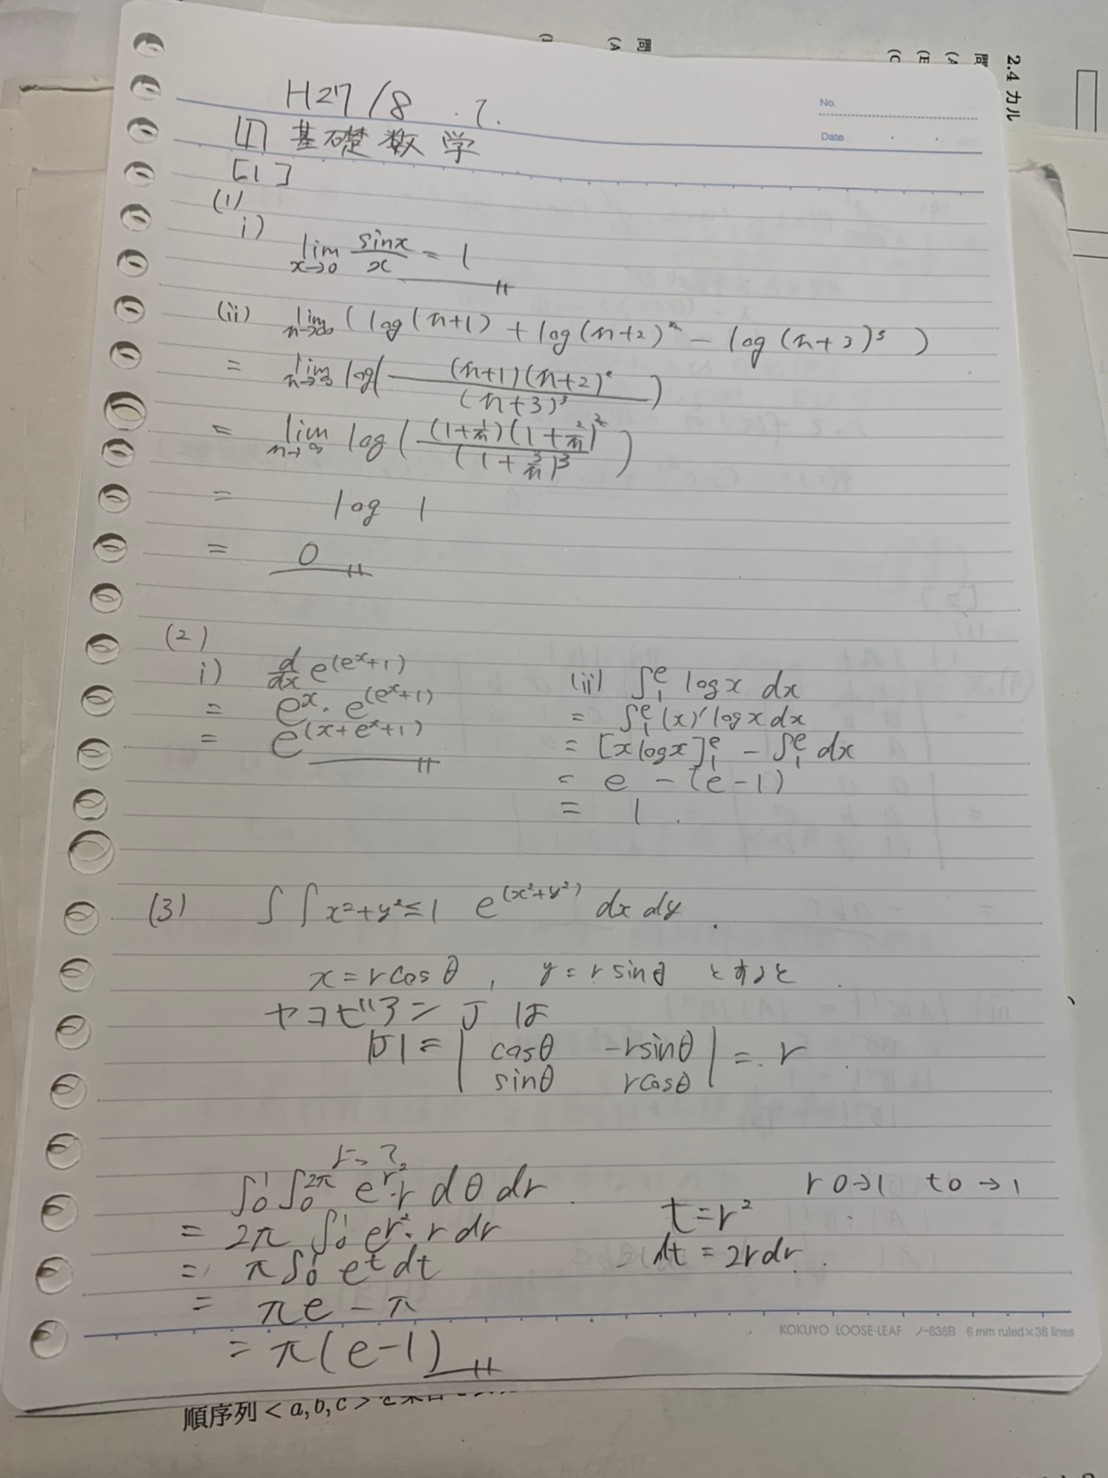 2.4 カル
No.
Date
H27/8 . 7.
[1] 基礎数学
[1]
(1)
i)
lim x→0 sinx/x = 1
(ii) lim n→∞ (log(n+1) + log(n+2)² - log(n+3)³)
= lim n→∞ log((n+1)(n+2)²/(n+3)³)
= lim n→∞ log((1+1/n)(1+2/n)²/(1+3/n)³)
= log 1
= 0
(2)
i) d/dx e^(e^x+1)
= e^x · e^(e^x+1)
= e^(x+e^x+1)
(ii) ∫₁ᵉ logx dx
= ∫₁ᵉ (x)' logx dx
= [x logx]₁ᵉ - ∫₁ᵉ dx
= e - (e-1)
= 1.
(3) ∫∫ x²+y²≤1 e^(x²+y²) dx dy.
x = r cosθ, y = r sinθ とすると
ヤコビアン J は
|J| = | cosθ -rsinθ | = r
sinθ rcosθ
∫₀¹ ∫₀^2π e^r²·r dθ dr
= 2π ∫₀¹ e^r²·r dr
= π ∫₀¹ e^t dt
= πe - π
= π(e-1)
r 0→1 t 0→1
t = r²
dt = 2rdr
KOKUYO LOOSE-LEAF ノ-836B 6mm ruled×36 lines
順序列 < a, b, c >